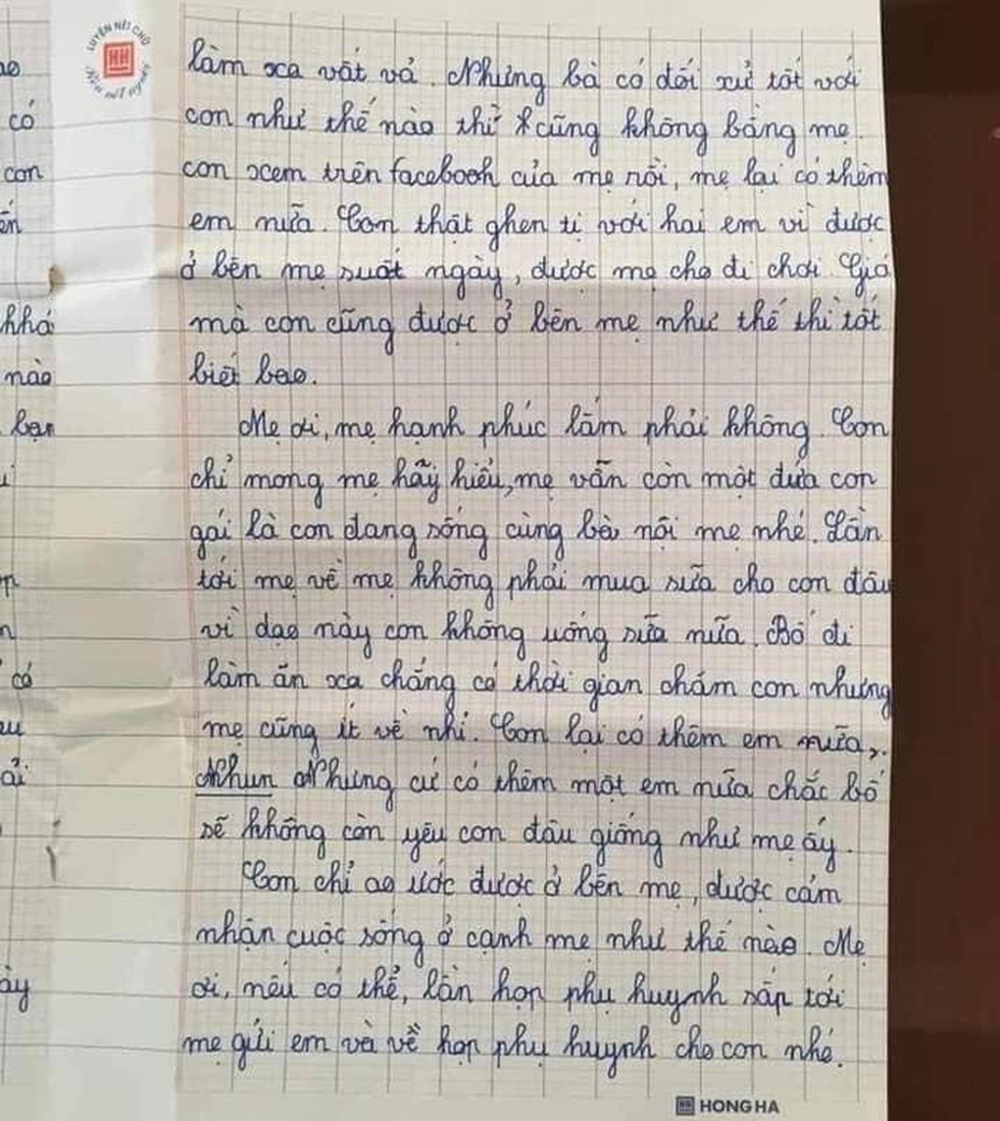 LUYỆN NÉT CHỮ
HH
Rèn nết người
ao
có
con
ến
khá
nào
bạn
có
ải
ày
làm xa vất vả. Nhưng bà có đối xử tốt với
con như thế nào thì cũng không bằng mẹ.
con xem trên facebook của mẹ rồi, mẹ lại có thêm
em nữa. Con thật ghen tị với hai em vì được
ở bên mẹ suốt ngày, được mẹ cho đi chơi. Giá
mà con cũng được ở bên mẹ như thế thì tốt
biết bao.
Mẹ ơi, mẹ hạnh phúc lắm phải không. Con
chỉ mong mẹ hãy hiểu, mẹ vẫn còn một đứa con
gái là con đang sống cùng bà nội mẹ nhé. Lần
tới mẹ về mẹ không phải mua sữa cho con đâu
vì dạo này con không uống sữa nữa. Bố đi
làm ăn xa chẳng có thời gian chăm con nhưng
mẹ cũng ít về nhỉ. Con lại có thêm em nữa,.
Nhun Nhưng cứ có thêm một em nữa chắc bố
sẽ không còn yêu con đâu giống như mẹ ấy.
Con chỉ ao ước được ở bên mẹ, được cảm
nhận cuộc sống ở cạnh mẹ như thế nào. Mẹ
ơi, nếu có thể, lần họp phụ huynh sắp tới
mẹ gửi em và về họp phụ huynh cho con nhé.
HH HONG HA